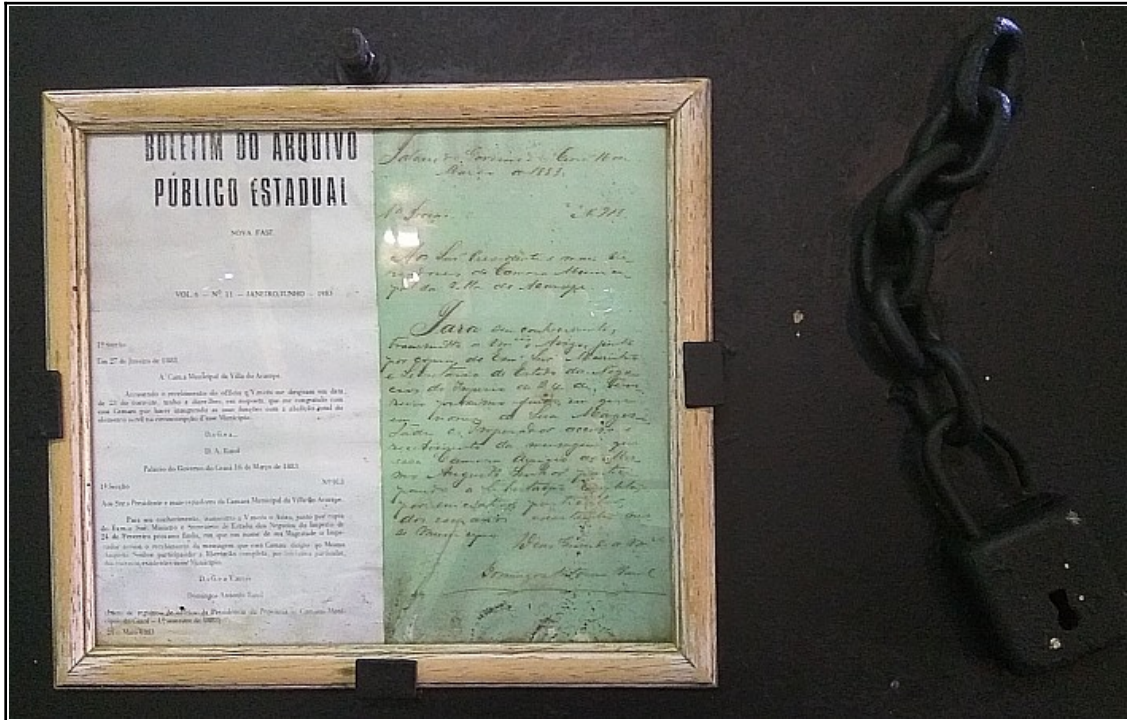 BOLETIM DO ARQUIVO
PÚBLICO ESTADUAL
NOVA FASE
VOL. 6 — Nº 11 — JANEIRO/JUNHO — 1983
1ª Secção
Em 27 de Janeiro de 1883.
A' Camara Municipal da Villa do Acarape.
Accusando o recebimento do officio q. Vmcês me dirigiram em data
de 25 do corrente, tenho a dizer-lhes, em resposta, que me congratulo com
essa Camara por haver inaugurado as suas funções com a abolição total do
elemento servil na circumscripção d'esse Municipio.
D. A. Raiol
Palacio do Governo do Ceará 16 de Março de 1883.
1ª Secção Nº 913
Aos Snrs Presidente e mais vereadores da Camara Municipal da Villa do Acarape.
Para seu conhecimento, transmitto a Vmcês o Aviso, junto por copia
do Exmo Snr. Ministro e Secretario de Estado dos Negocios do Imperio de
24 de Fevereiro proximo findo, em que em nome de sua Magestade o Impe-
rador accusa o recebimento da mensagem que essa Camara dirigio ao Mesmo
Augusto Senhor participando a libertação completa, por iniciativa particular,
dos escravos existentes nesse Municipio.
Domingos Antonio Raiol
Palacio do Governo do Ceará 16 de
Março de 1883.
1ª Secção. Nº 913
Aos Snrs Presidente e mais ve
readores da Camara Munici
pal da Villa do Acarape.
Para seu conhecimento,
transmitto a Vmcês o Aviso, junto
por copia, do Exmo Snr. Ministro
e Secretario de Estado dos Nego
cios do Imperio de 24 de Feve
reiro proximo findo, em que
em nome de Sua Mages
tade o Imperador accusa o
recebimento da mensagem que
essa Camara dirigio ao Mes
mo Augusto Senhor partici
pando a libertação completa